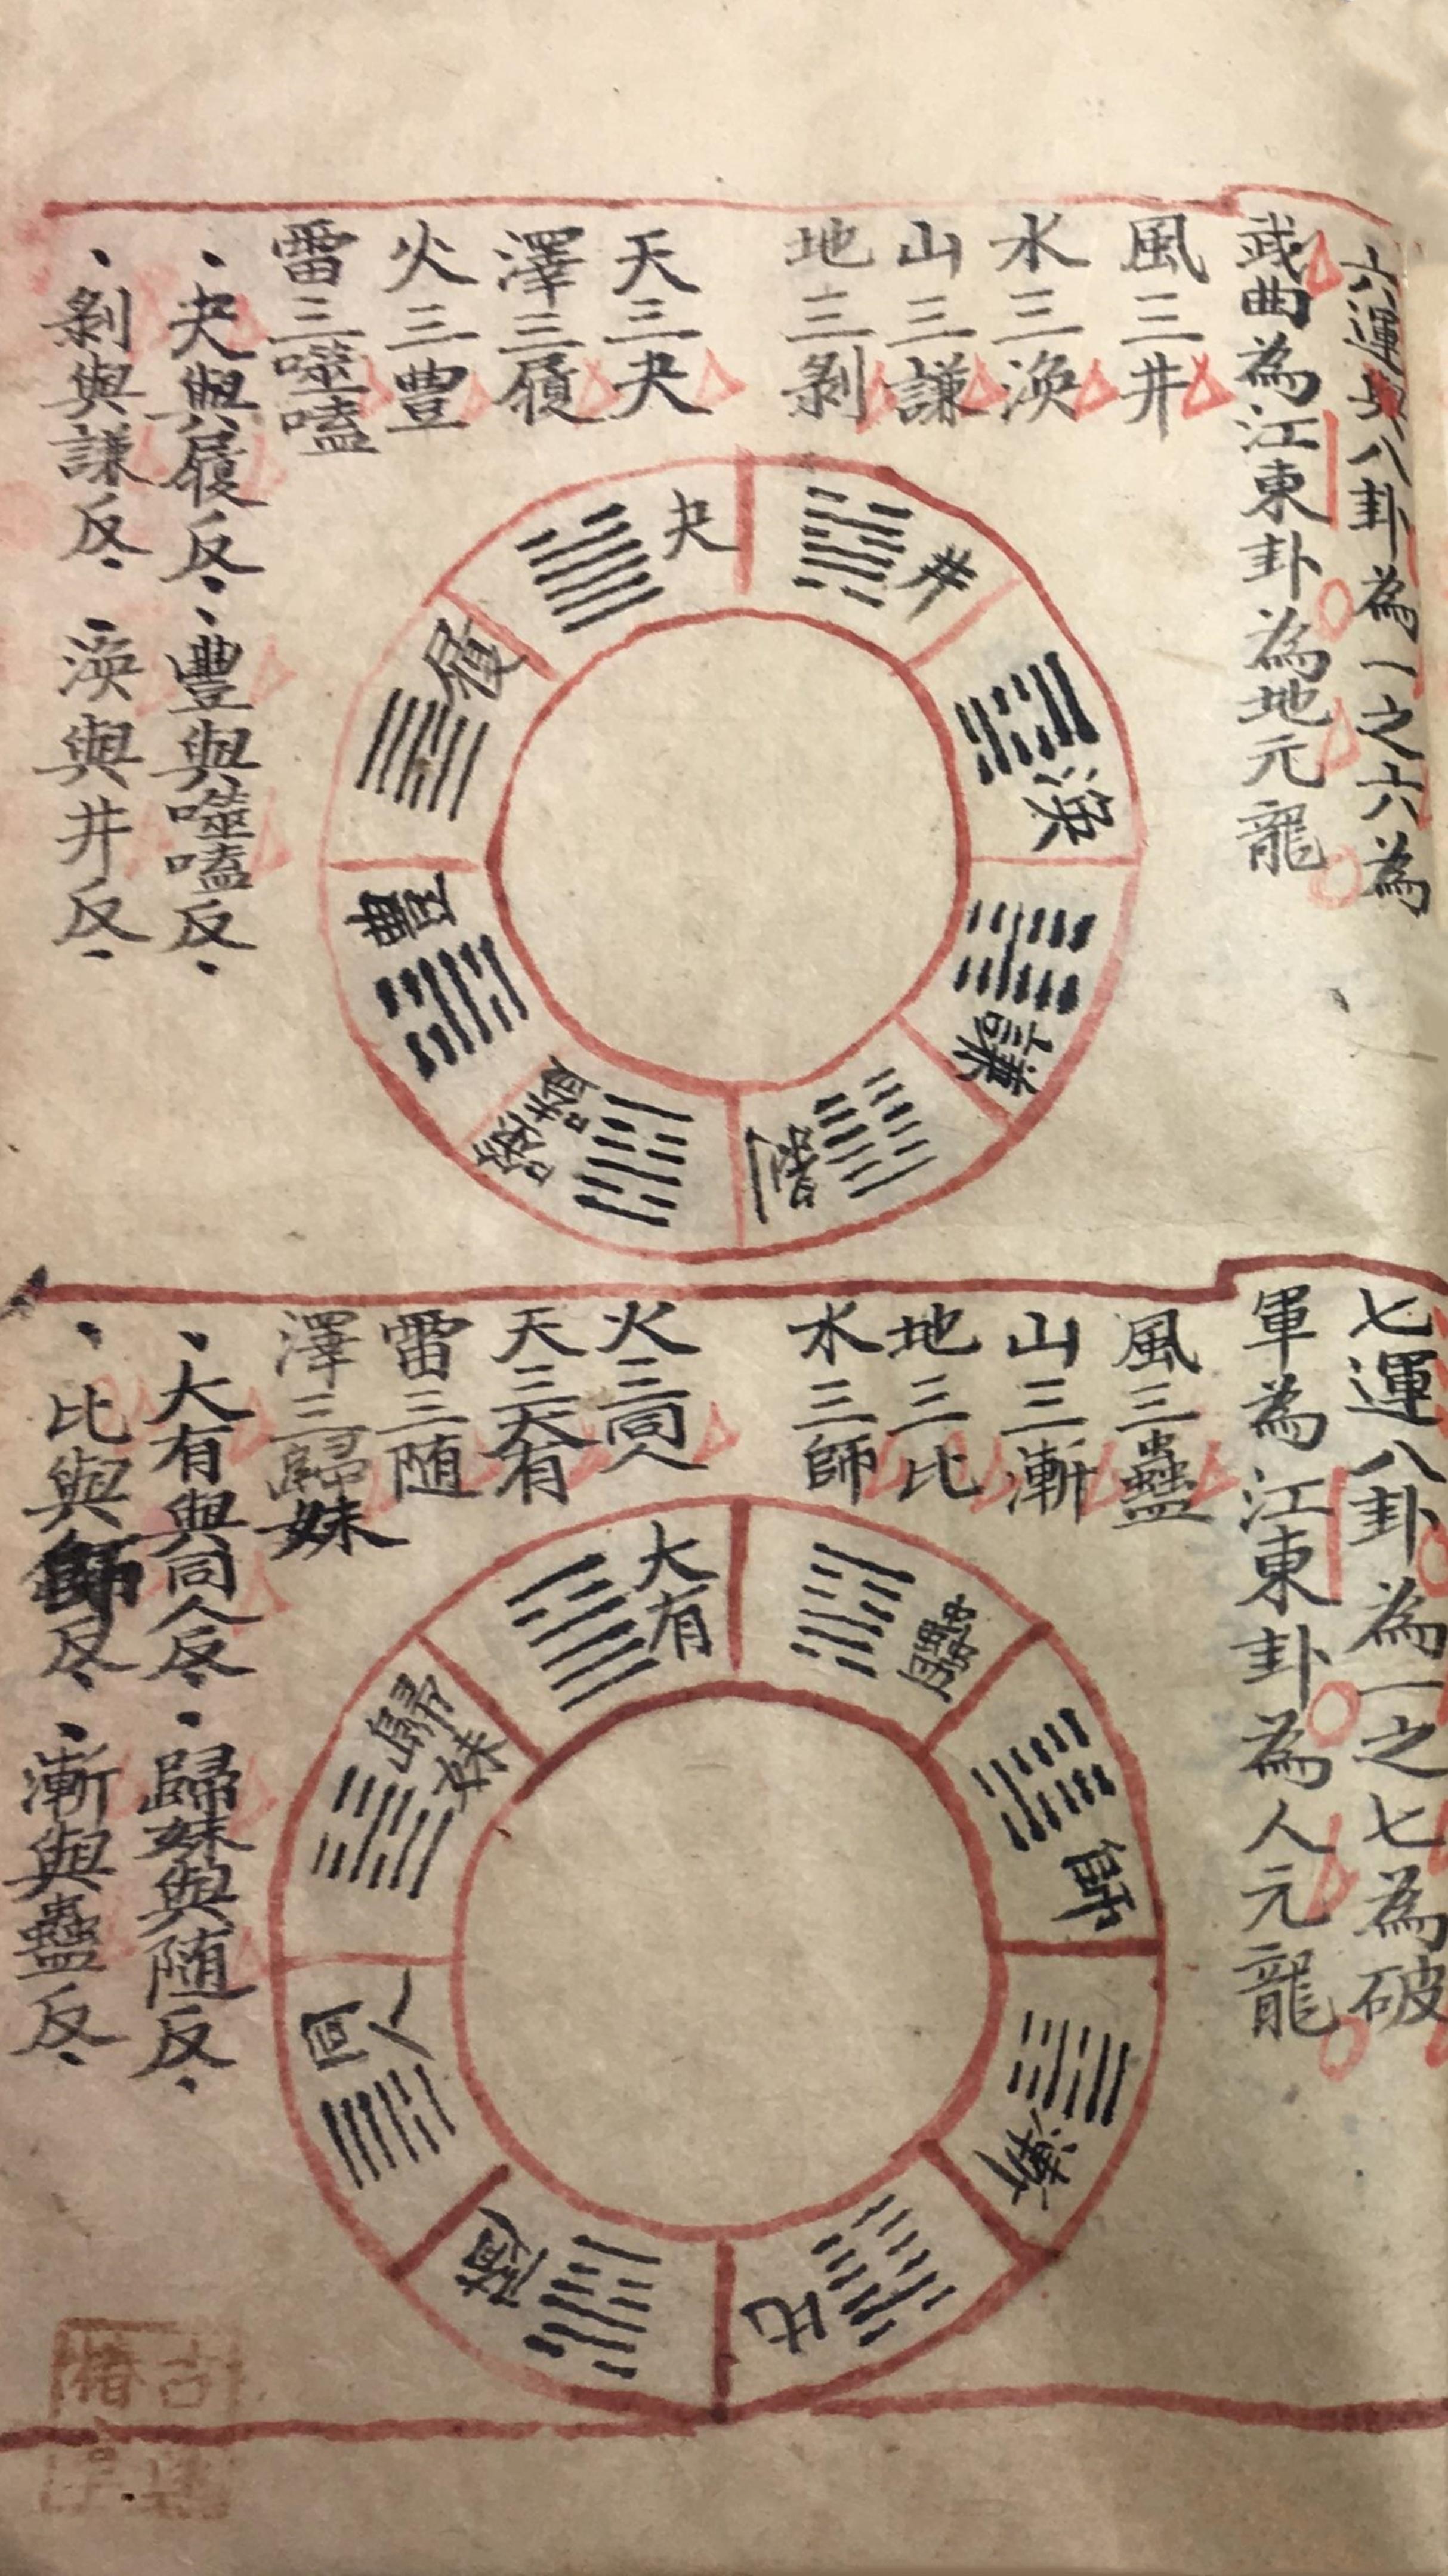 六運此八卦為一之六為
武曲為江東卦為地元龍
風三井
水三渙
山三謙
地三剝
天三夬
澤三履
火三豐
雷三噬嗑
夬與履反 豐與噬嗑反
剝與謙反 渙與井反
井
渙
謙
剝
噬嗑
豐
履
夬
七運八卦為一之七為破
軍為江東卦為人元龍
風三蠱
山三漸
地三比
水三師
火三同人
天三大有
雷三随
澤三歸妹
大有與同人反 歸妹與随反
比與師反 漸與蠱反
蠱
師
漸
比
随
同人
歸妹
大有